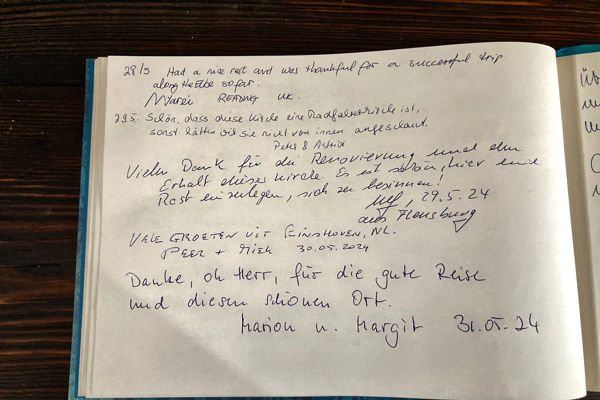 28/5 Had a nice rest and was thankful for a successful trip
along the Elbe so far.
READING UK.
29.5. Schön, dass diese Kirche eine Radfahrerkirche ist,
sonst hätten wir sie nicht von innen angeschaut.
Peter & Astrid
Vielen Dank für die Renovierung und den
Erhalt dieser Kirche. Es ist schön, hier eine
Rast einzulegen, sich zu besinnen!
29.5.24
aus Flensburg
VELE GROETEN UIT EINDHOVEN, NL.
PEER + MIEK 30.05.2024
Danke, oh Herr, für die gute Reise
und diesen schönen Ort.
Marion u. Margit 31.05.24